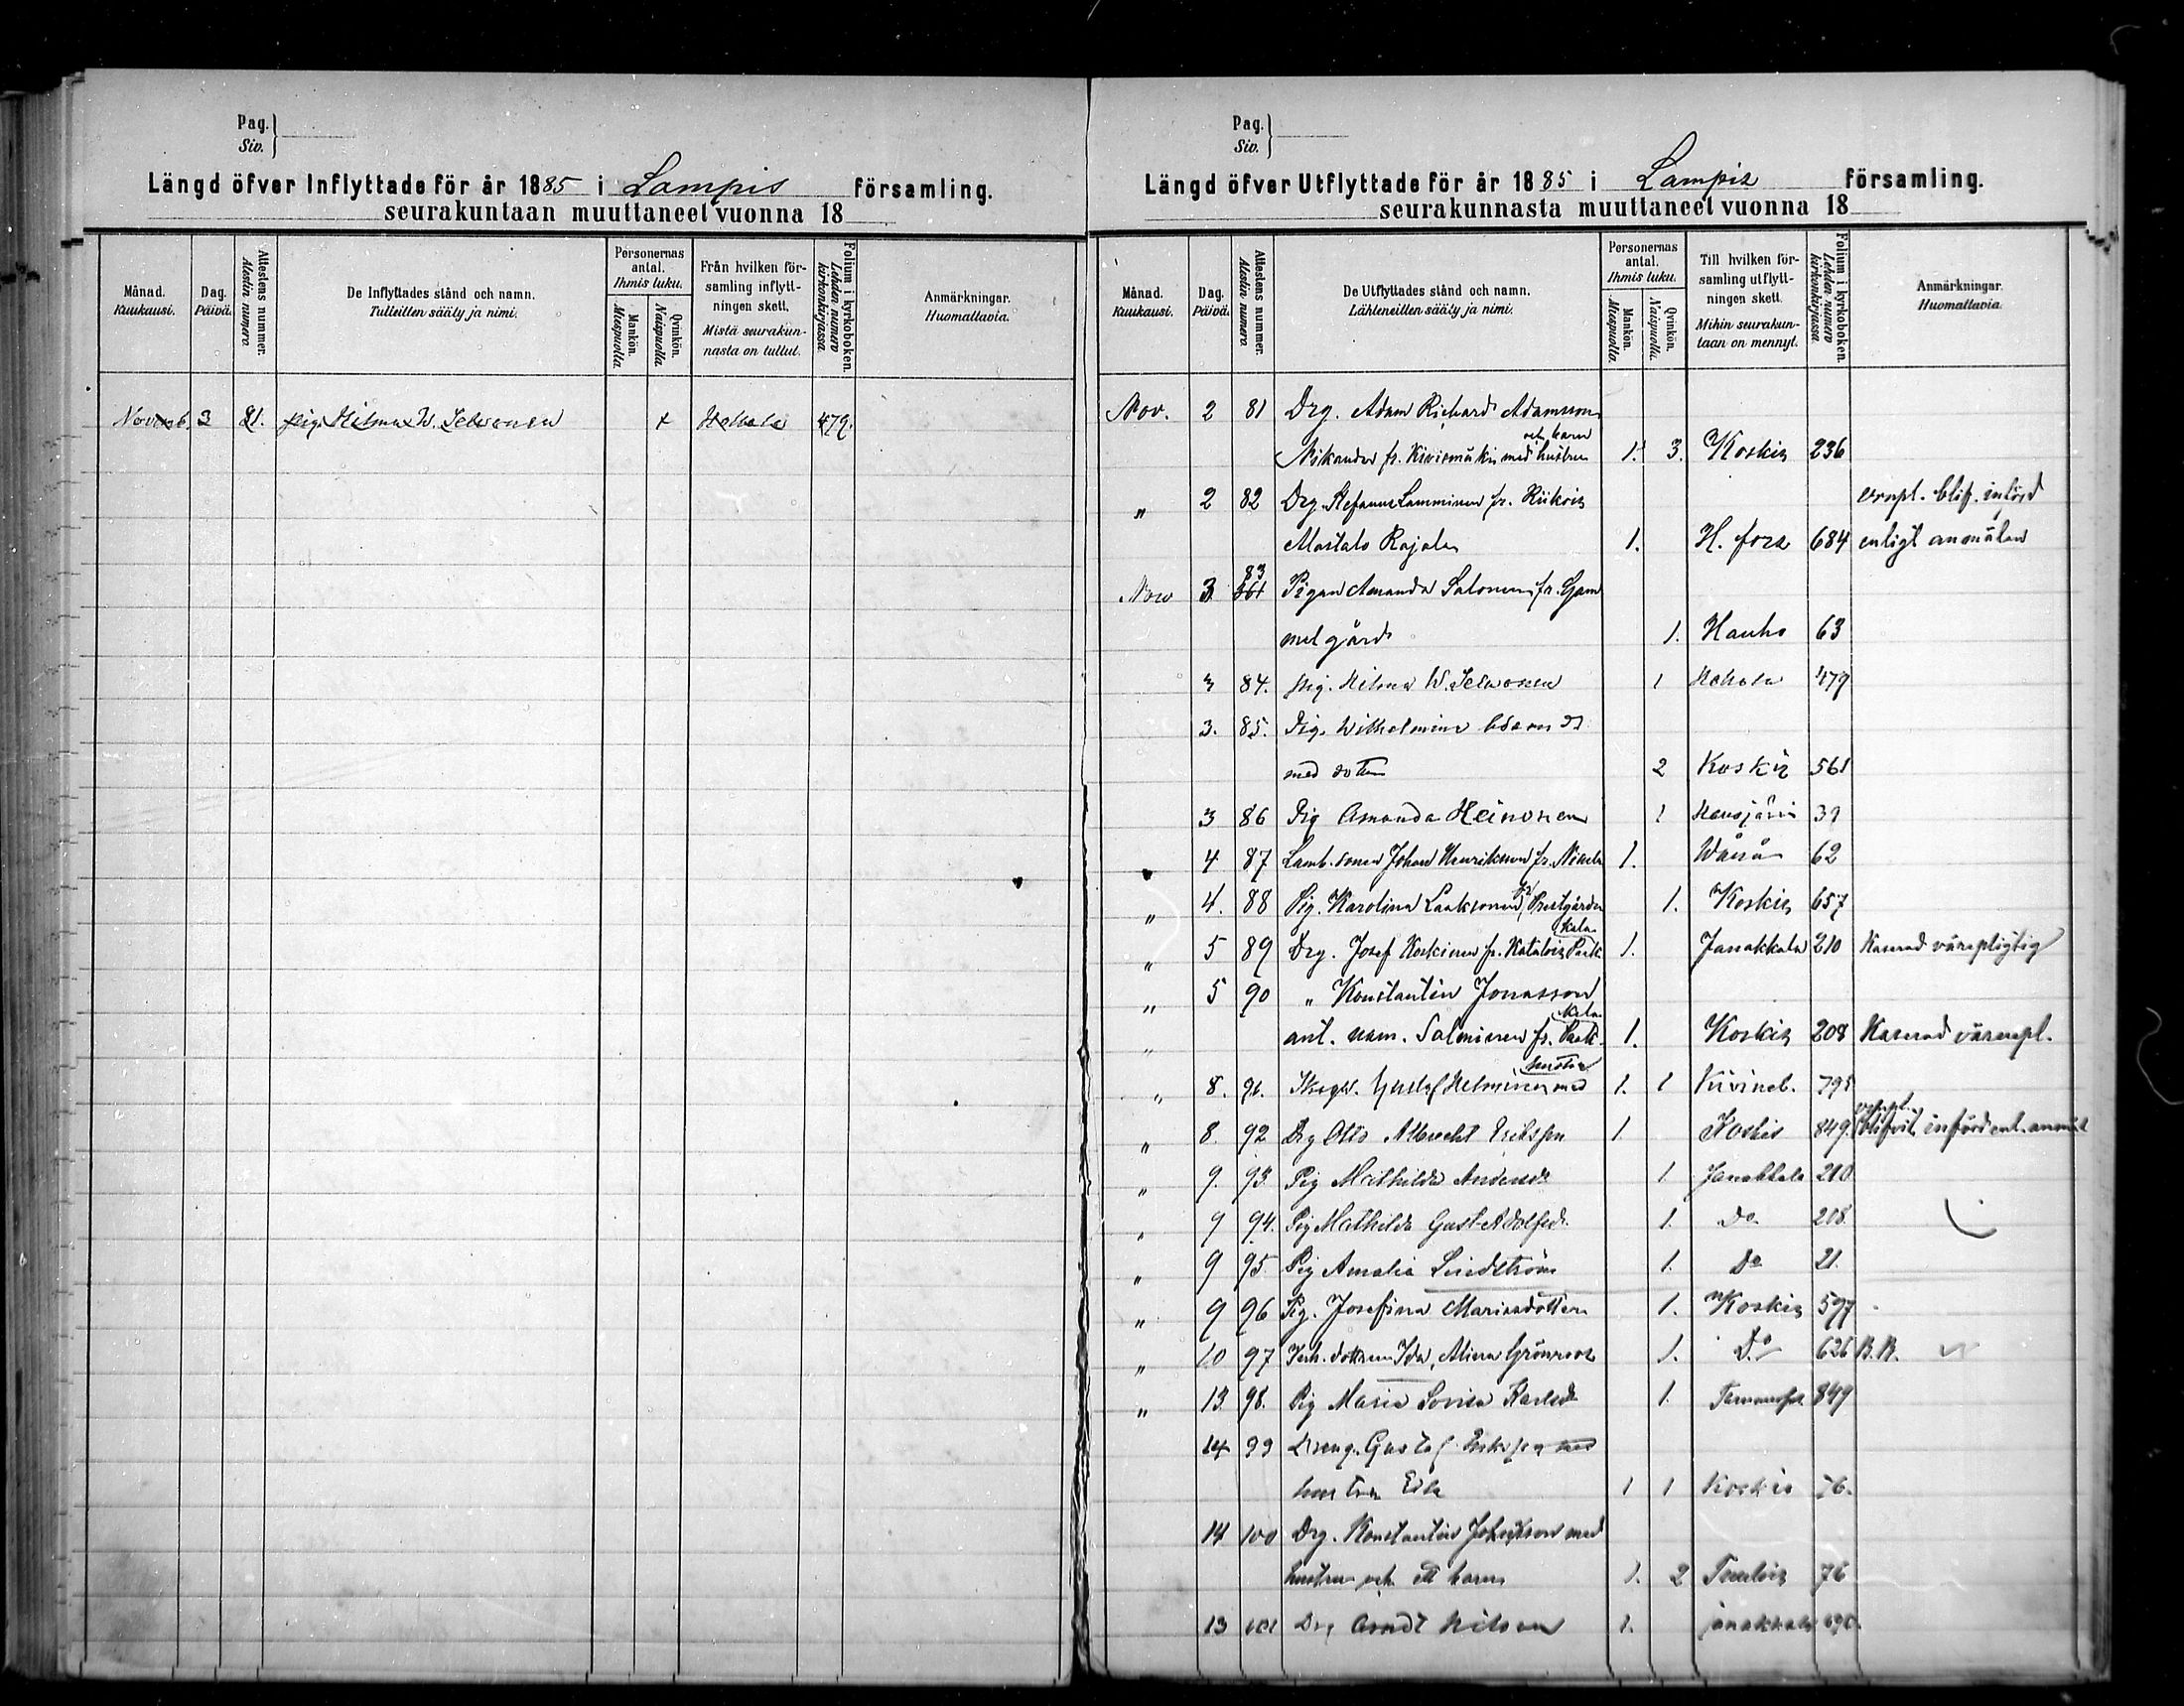 Pag.
Siv.
Längd öfver Inflyttade för år 1885 i Lampis församling.
seurakuntaan muuttaneet vuonna 18
Månad.
Kuukausi.
Dag.
Päivä.
Attestens nummer.
Alestin numero.
De Inflyttades stånd och namn.
Tulleitten sääty ja nimi.
Personernas antal.
Ihmis luku.
Mankön.
Miespuolia.
Qvinkön.
Naispuolia.
Från hvilken för-
samling inflytt-
ningen skett.
Mistä seurakun-
nasta on tullut.
Folium i kyrkoboken.
Lehden numero
kirkonkirjassa
Anmärkningar.
Huomattavia.
Novemb. 3 81. pig. Hilma W. Selvonen + Hattula 479.
Pag.
Siv.
Längd öfver Utflyttade för år 1885 i Lampis församling.
seurakunnasta muuttaneet vuonna 18
Månad.
Kuukausi.
Dag.
Päivä.
Attestens nummer.
Alestin numero.
De Utflyttades stånd och namn.
Lähteneitten sääty ja nimi.
Personernas antal.
Ihmis luku.
Mankön.
Miespuolia.
Qvinkön.
Naispuolia.
Till hvilken för-
samling utflytt-
ningen skett.
Mihin seurakun-
taan on mennyt.
Folium i kyrkoboken.
Lehden numero
kirkonkirjassa
Anmärkningar.
Huomattavia.
Nov. 2 81 Drg. Adam Richard Adamsson
och barn
Nikander fr. Kivismäki med hustru 1. 3. Koskis 236
" 2 82 Drg. Stefanus Lamminen fr. Riikois blif. införd
Mastalo Rajala 1. H. fors 684 enligt anmälan
83
Nov 3 Pigan Amanda Salonen fr. Gam
melgård 1. Hauho 63
3 84. pig. Hilma W. Selvonen 1 479
3. 85. Pig. Wilhelmina
med dotter 2 Koskis 561
3 86 Pig Amanda Heinonen 1 Hausjärvi 39
4 87 Lamb. sonen Johan Henriksson fr. 1. Wånå 62
" 4. 88 Pig. Karolina Laaksonen fr. Prestgården 1. Koskis 657
kala
" 5 89 Drg. Josef Koskinen fr. Katalois Pack 1. Janakkala 210 Kasserad värnpligtig
" 5 90 " Konstantin Jonasson
kala
" ant. nam. Salminen fr. Pack 1. Koskis 208 Kasserad värnpl.
hustru
" 8. 91. Gustaf Helminen med 1. 1 Kivineb. 795
värnpl.
" 8. 92 Drg Otto Albrecht Eriksson 1 Koskis 849. blifvit införd enl. anmäl
" 9. 93 Pig Mathilda Andersdr 1 Janakkala 210
" 9 94. Pig Mathilda Gust. Adolfsdr. 1. Do 208
" 9 95 Pig Amalia Lindström 1. Do 21.
" 9 96 Pig. Josefina Mariasdotter 1. Koskis 597
" 10 97 Inh. dottren Ida Alina Grönroos 1. Do 626 B.B.
" 13 98. Pig Maria Lovisa Karlsdr 1. Tammerfors 849
14 99 Dreng. Gustaf med
hustru 1 1 Koskis 76.
14 100 Drg. Konstantin med
hustru och ett barn 1. 2 Tuulois 76
13 101 Drg 1. Janakkala